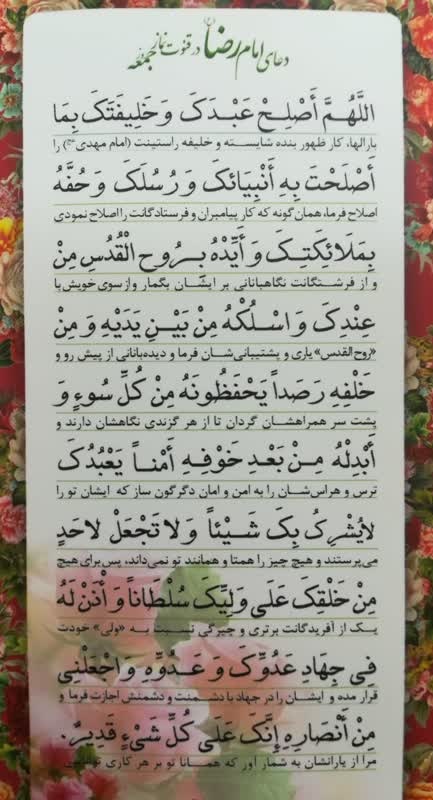 دعای امام رضا(ع) در قنوت نماز جمعه
اللَّهُمَّ أَصْلِحْ عَبْدَكَ وَ خَلِيفَتَكَ بِمَا
بارالها، کار ظهور بنده شایسته و خلیفه راستینت (امام مهدی عج) را
أَصْلَحْتَ بِهِ أَنْبِيَائَكَ وَ رُسُلَكَ وَ حُفَّهُ
اصلاح فرما، همان گونه که کار پیامبران و فرستادگانت را اصلاح نمودی
بِمَلَائِكَتِكَ وَ أَيِّدْهُ بِرُوحِ الْقُدُسِ مِنْ
و از فرشتگانت نگاهبانانی بر ایشان بگمار و از سوی خویش با
عِنْدِكَ وَ اسْلُكْهُ مِنْ بَيْنِ يَدَيْهِ وَ مِنْ
«روح القدس» یاری و پشتیبانی‌شان فرما و دیده‌بانانی از پیش رو و
خَلْفِهِ رَصَداً يَحْفَظُونَهُ مِنْ كُلِّ سُوءٍ وَ
پشت سر همراهشان گردان تا از هر گزندی نگاهشان دارند و
أَبْدِلْهُ مِنْ بَعْدِ خَوْفِهِ أَمْناً يَعْبُدُكَ
ترس و هراس‌شان را به امن و امان دگرگون ساز که ایشان تو را
لَايُشْرِكُ بِكَ شَيْئاً وَ لَا تَجْعَلْ لِاَحَدٍ
می‌پرستند و هیچ چیز را همتا و همانند تو نمی‌داند، پس برای هیچ
مِنْ خَلْقِكَ عَلَى وَلِيِّكَ سُلْطَاناً وَ أْذَنْ لَهُ
یک از آفریدگانت برتری و چیرگی نسبت به «ولی» خودت
فِي جِهَادِ عَدُوِّكَ وَ عَدُوِّهِ وَ اجْعَلْنِي
قرار مده و ایشان را در جهاد با دشمنت و دشمنش اجازت فرما و
مِنْ أَنْصَارِهِ إِنَّكَ عَلَى كُلِّ شَيْءٍ قَدِيرٌ.
مرا از یارانشان به شمار آور که همانا تو بر هر کاری